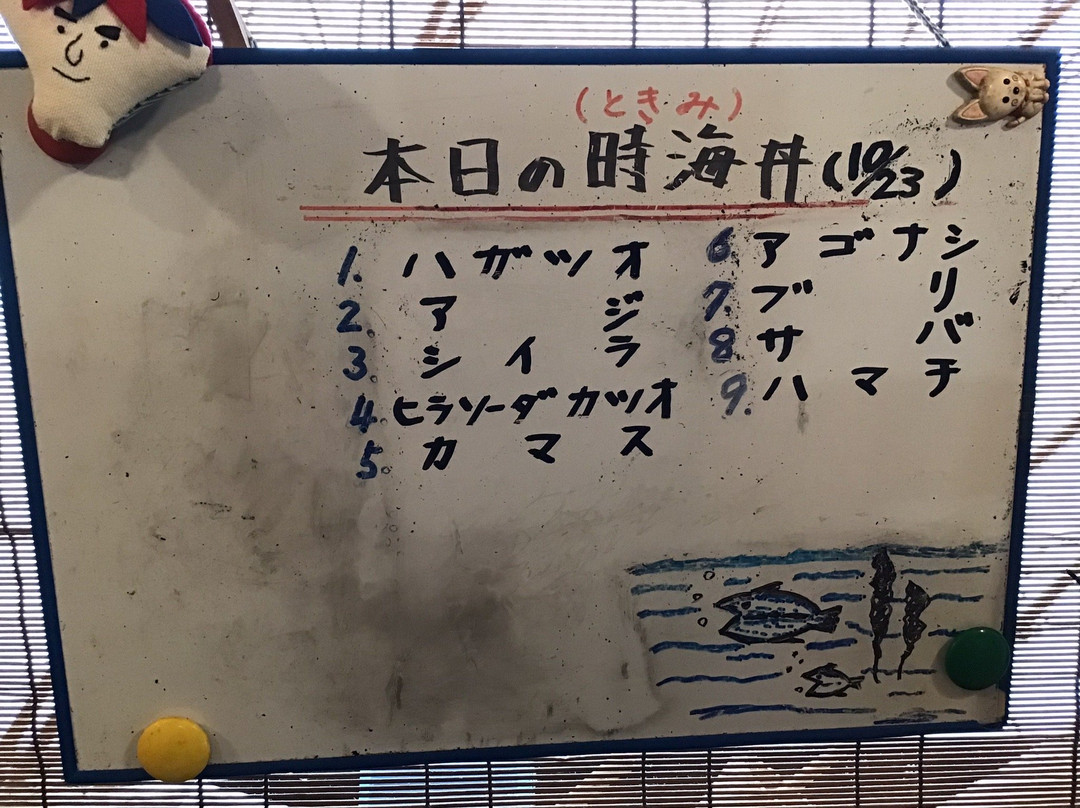 (ときみ)
本日の時海丼(10/23)
1. ハガツオ
2. アジ
3 シイラ
4. ヒラソーダカツオ
5. カマス
6 アゴナシ
7. ブリ
8 サバ
9. ハマチ